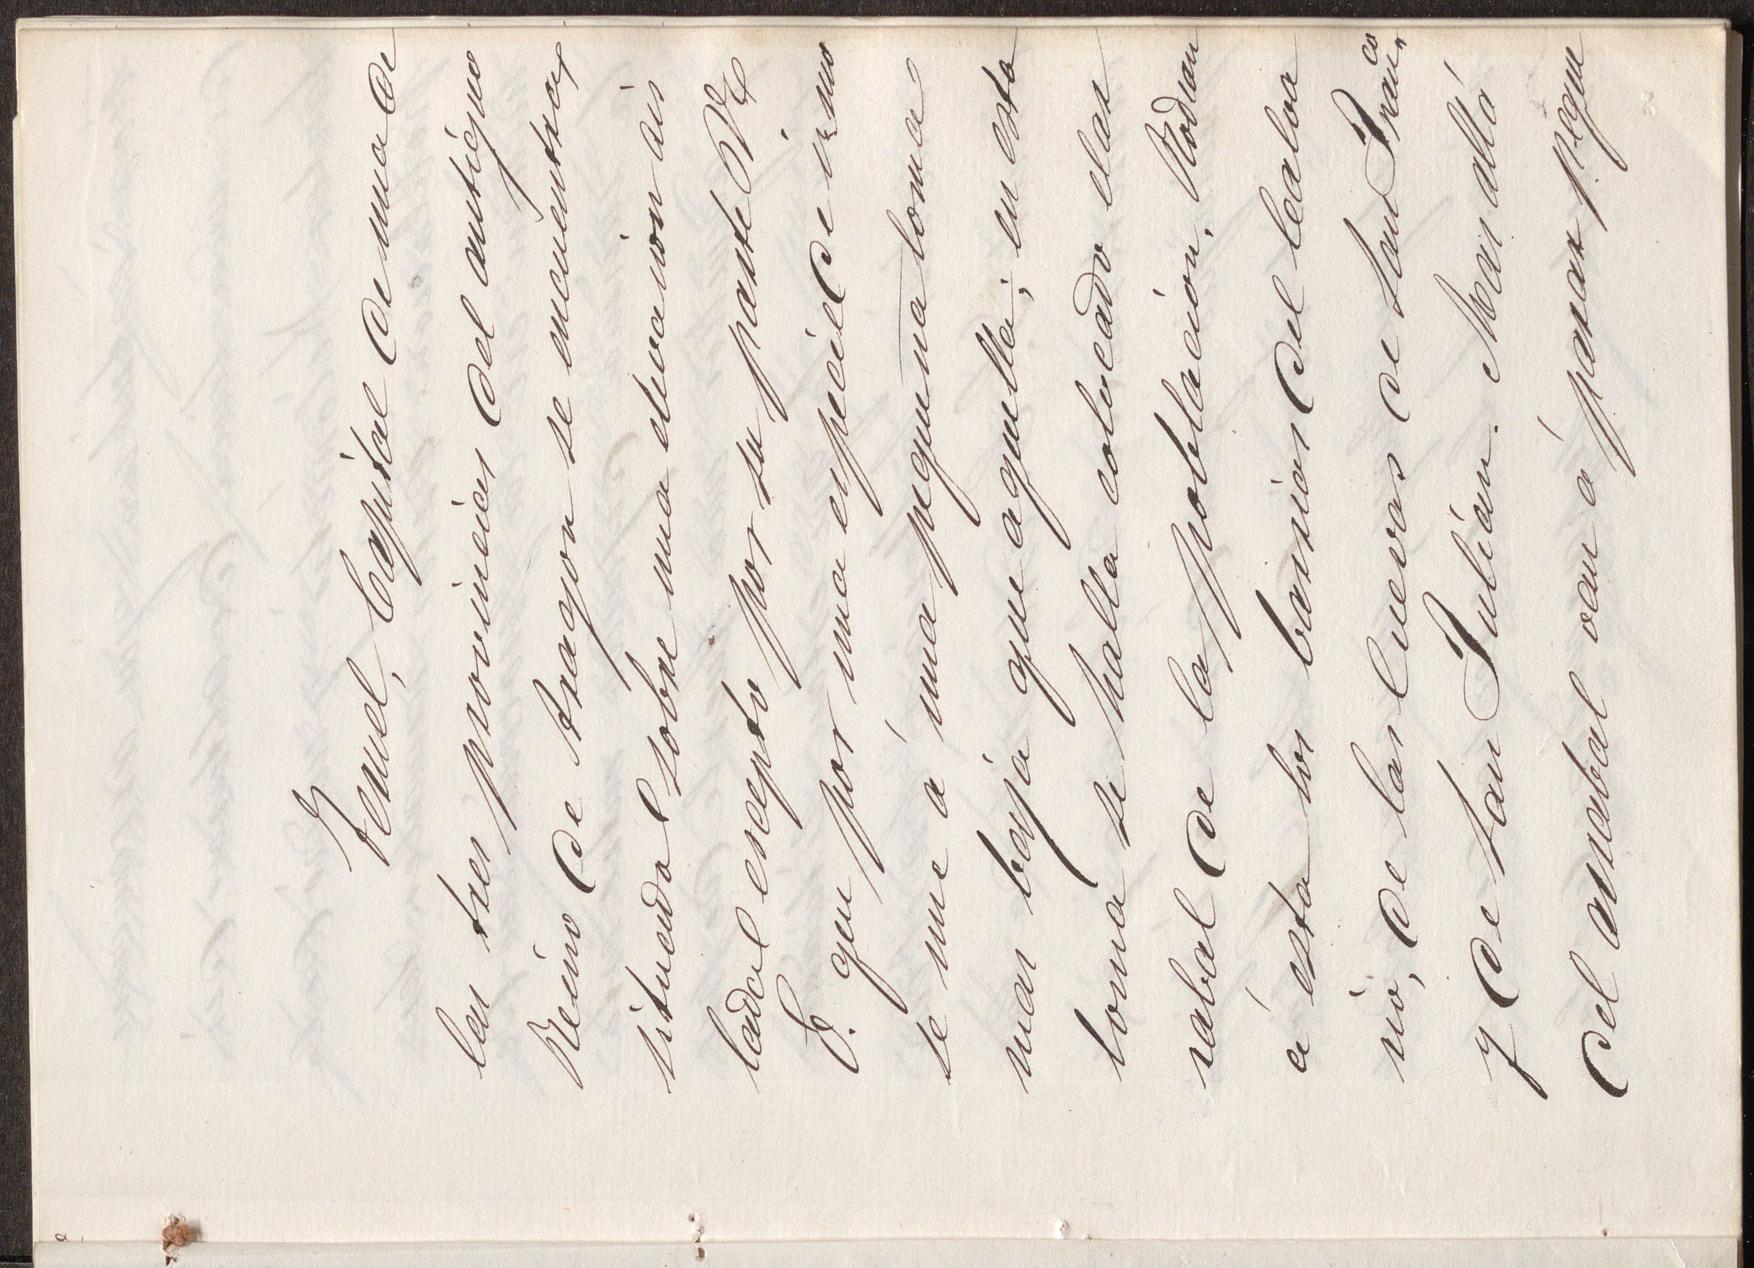 Teruel, Capital de una de
las tres provincias del antiguo
Reino de Aragon se encuentra
situada sobre una elevacion ais
lada escepto por su parte N.
E. que por una especie de itsmo
se une á una pequeña loma
mas baja que aquella; en esta
loma se halla colocado el ar
rabal de la poblacion. Rodean
á esta los barrios del Calva
rio, de las Cuevas de San Franco
y de San Julián. Mas allá
del arrabal van á parar peque